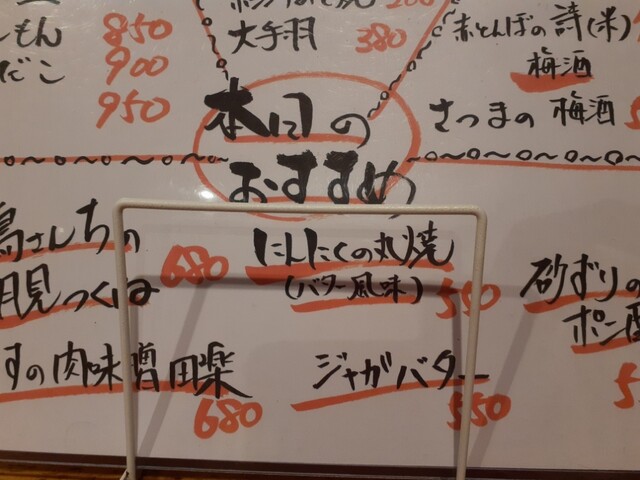 しもん 850
だこ 900
950
大手羽 380
赤とんぼの詩(米)
梅酒
さつまの 梅酒
本日の
おすすめ
鳥さんちの
月見つくね 680
にんにくの丸焼
(バター風味) 550
砂ずりの
ポン酢
すの肉味噌田楽
680
ジャガバター
550